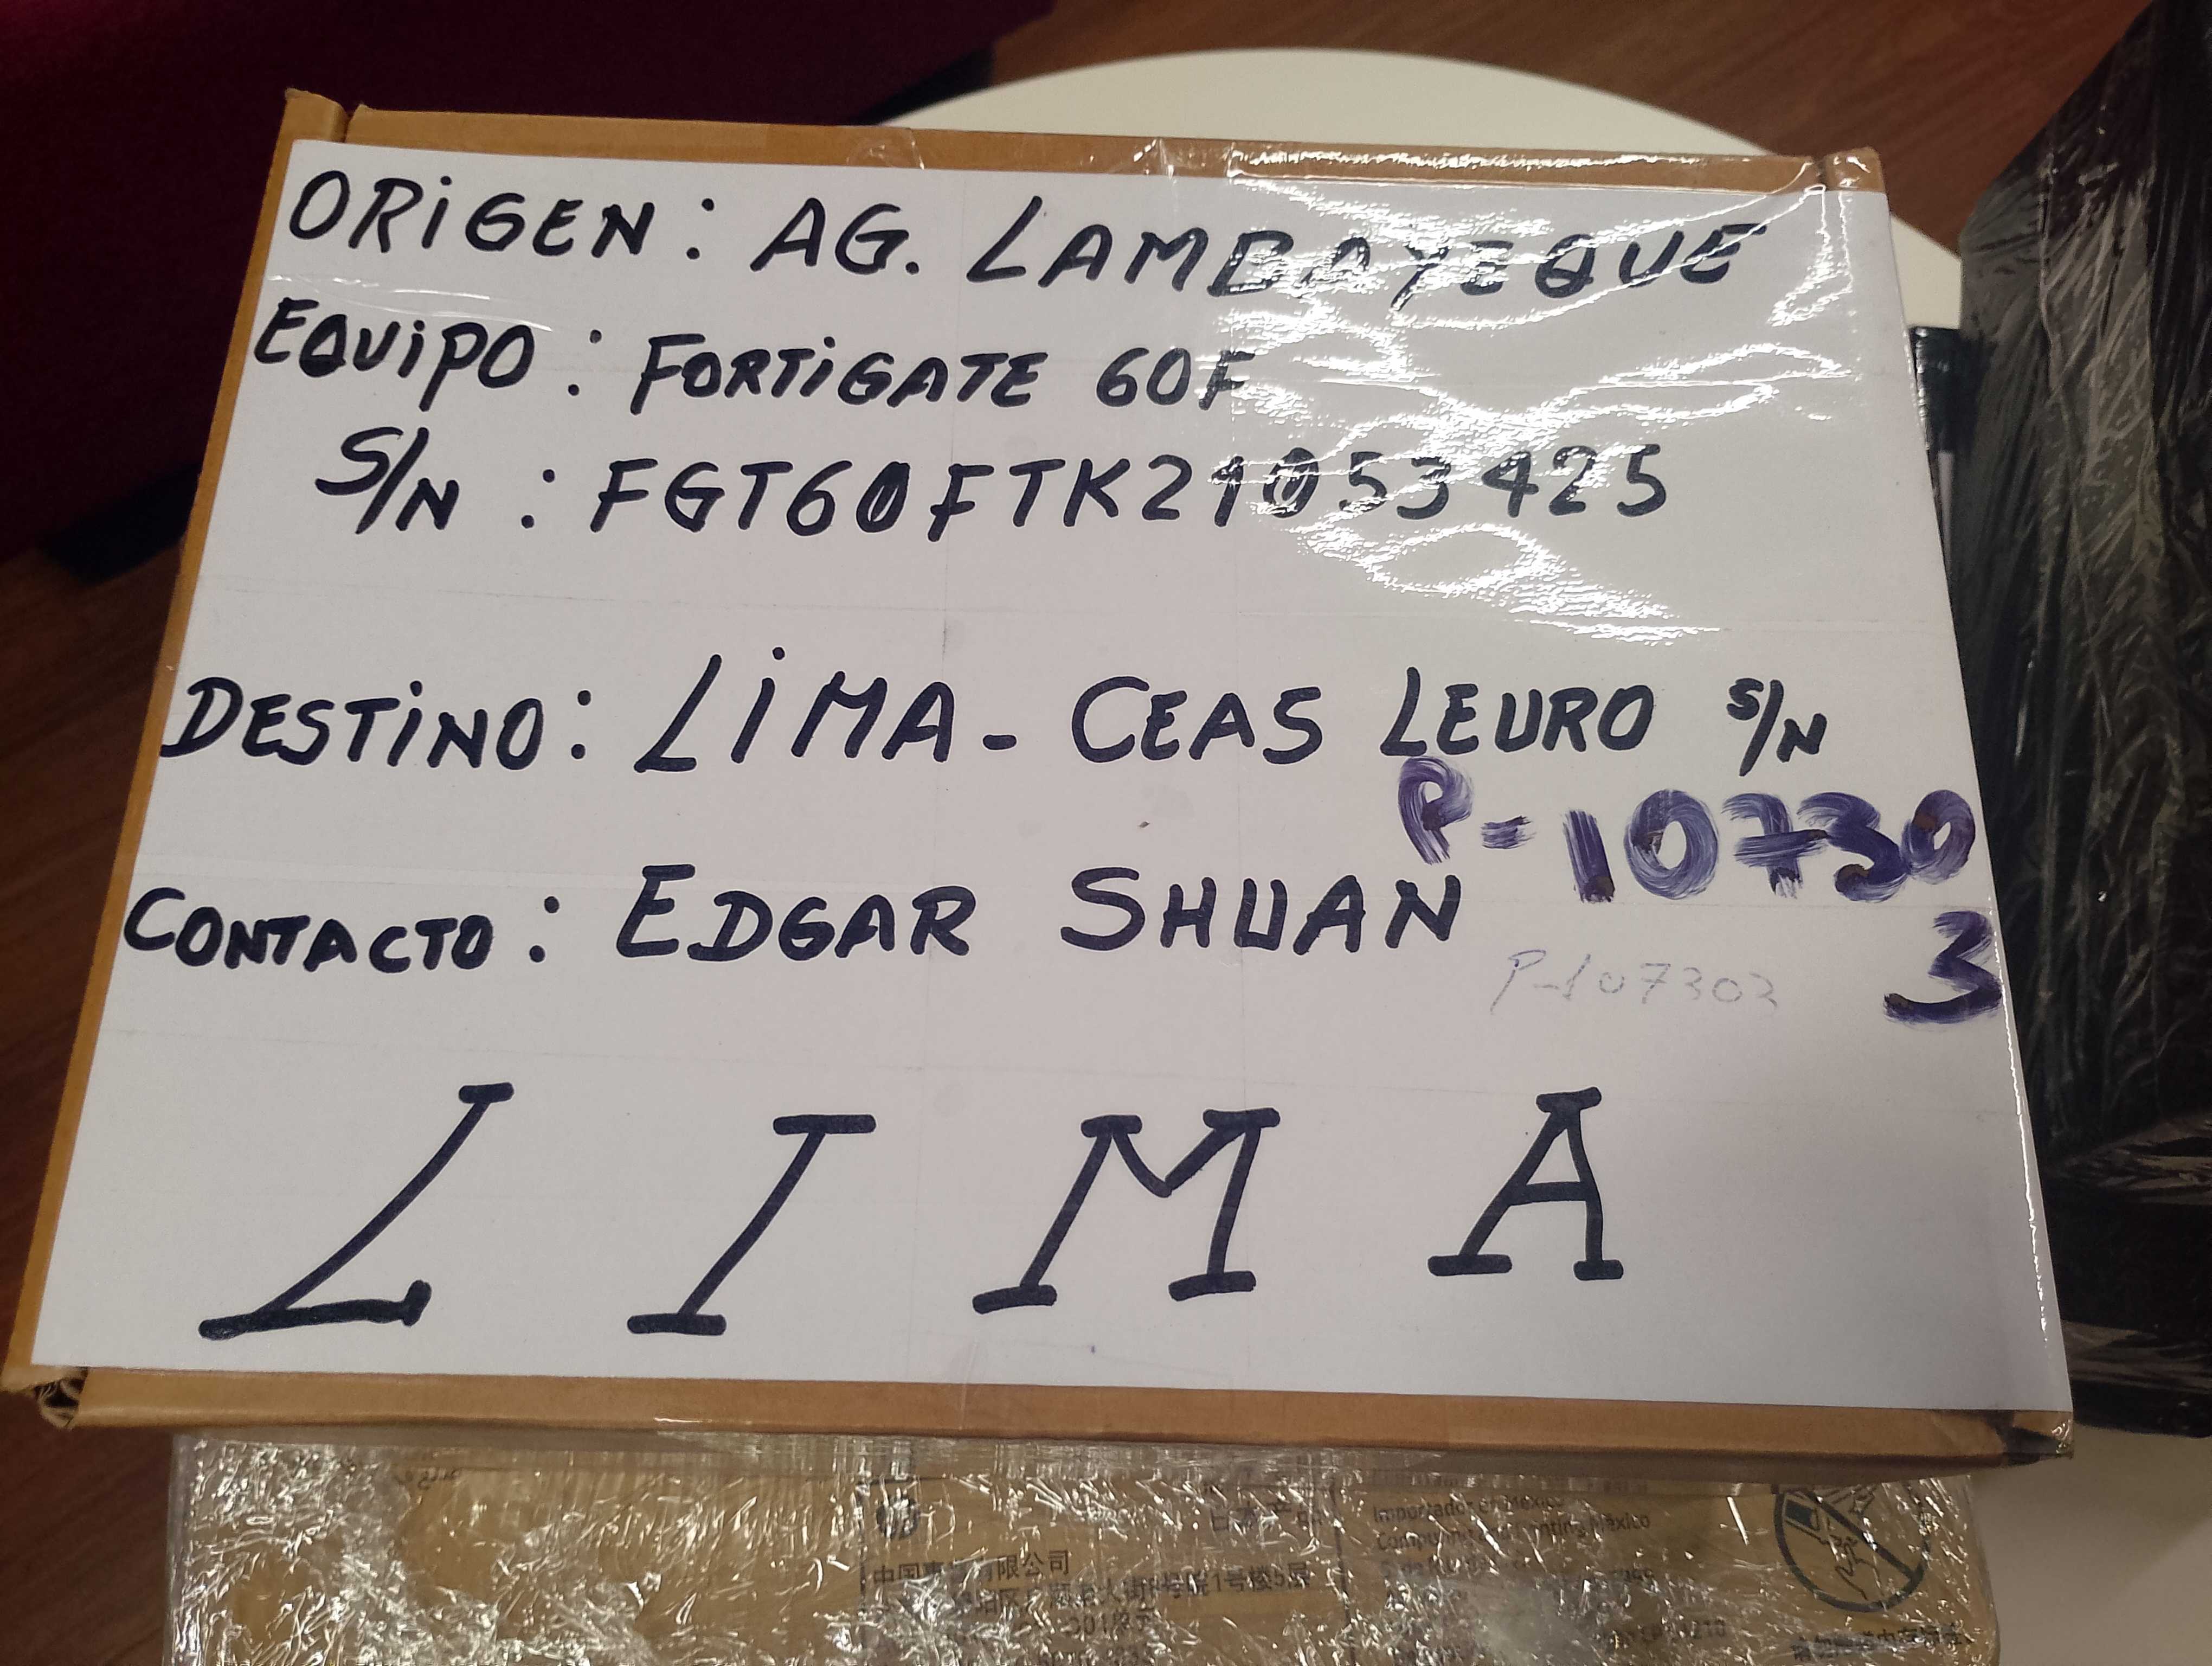 ORiGEN: AG. LAMBAYEQUE
EQUiPO: FORTiGATE 60F
S/N: FGT60FTK21053425
DESTiNO: LiMA- CEAS LEURO S/N
P-10730
3
CONTACTO: EDGAR SHUAN
P-107303
LIMA
Importador en México
Computing and Printing México